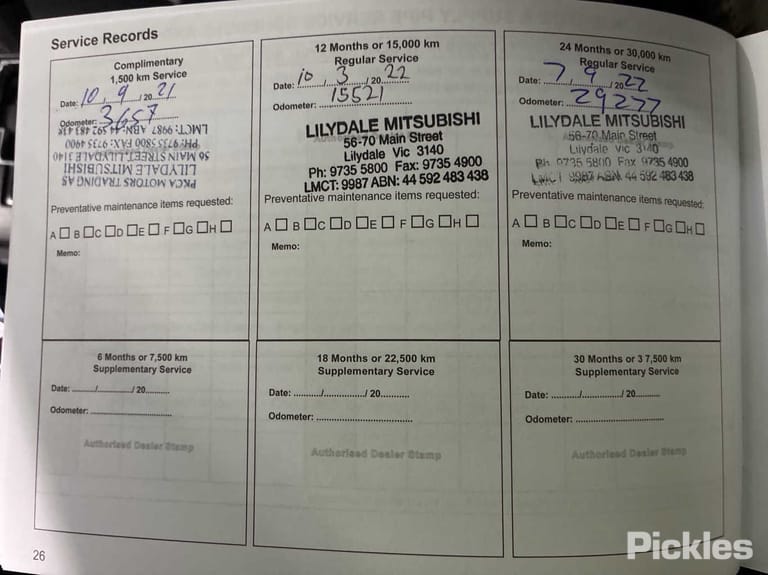 Service Records
Complimentary
1,500 km Service
Date: 10, 9 /20 21
Odometer: 3657
PKCA MOTORS TRADING AS
LILYDALE MITSUBISHI
56 MAIN STREET, LILYDALE 3140
PH: 9735 5800 FAX: 9735 4900
LMCT: 9987 ABN: 44 592 483 438
Preventative maintenance items requested:
A □ B □ C □ D □ E □ F □ G □ H □
Memo:
12 Months or 15,000 km
Regular Service
Date: 10 / 3 / 20 22
Odometer: 15521
LILYDALE MITSUBISHI
56-70 Main Street
Lilydale Vic 3140
Ph: 9735 5800 Fax: 9735 4900
LMCT: 9987 ABN: 44 592 483 438
Preventative maintenance items requested:
A □ B □ C □ D □ E □ F □ G □ H □
Memo:
24 Months or 30,000 km
Regular Service
Date: 7, 9 /20 22
Odometer: 29277
LILYDALE MITSUBISHI
56-70 Main Street
Lilydale Vic 3140
Ph: 9735 5800 Fax 9735 4900
LMCT 9987 ABN 44 592 483 438
Preventative maintenance items requested:
A □ B □ C □ D □ E □ F □ G □ H □
Memo:
6 Months or 7,500 km
Supplementary Service
Date: ......../............/ 20..........
Odometer: ..............................
Authorised Dealer Stamp
18 Months or 22,500 km
Supplementary Service
Date: ........./.............../ 20..........
Odometer: ...................................
Authorised Dealer Stamp
30 Months or 3 7,500 km
Supplementary Service
Date: ........./.............../ 20.........
Odometer: ................................
Authorised Dealer Stamp
26
Pickles